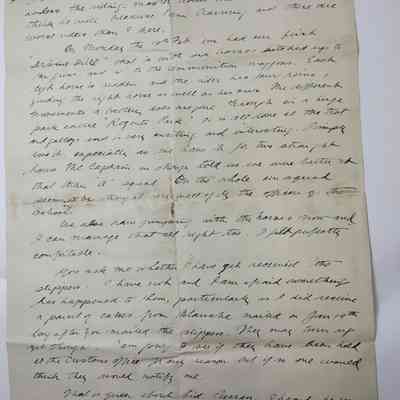 unless the riding master
think so well because I am learning and there are
worse riders than I here.
On Monday the 10th Feb. we had our first
"driving drill" that is with six horses hitched up to
the guns and 4 to the communication waggons. Each
left horse is ridden and the rider has two horses,
guiding the right horse as well as his own. The different
movements a battery does are gone through in a large
park called "Regents Park" or is all done at the trot
and gallop and is very exciting and interesting. I enjoy
much especially as we have it for two straight
hours. The Captain in charge told us we were better at
that than "A" squad. On the whole our squad
seem to be thought very well of by the officers of the
school.
We also have jumping with the horses now and
I can manage that all right too. I felt perfectly
comfortable.
You ask me whether I have yet received the
slippers. I have not and I am afraid something
has happened to them, particularly as I did receive
a parcel of cakes from Blanche mailed on from the
day after you mailed the slippers. They may turn up
yet though. I am going to see if they have been held
at the Customs office for any reason but if so one would
think they would notify me.
That is good about Sid Curran.